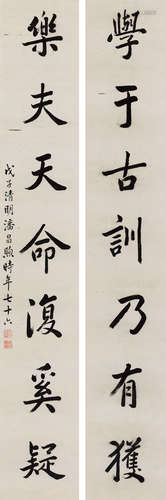 學于古訓乃有獲
樂夫天命復奚疑
戊子清明潘昌煦時年七十六